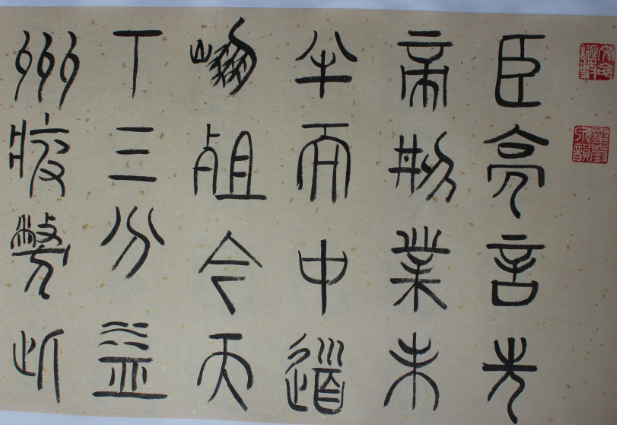 臣亮言先
帝刱業未
半而中道
崩殂今天
下三分益
州疲弊此